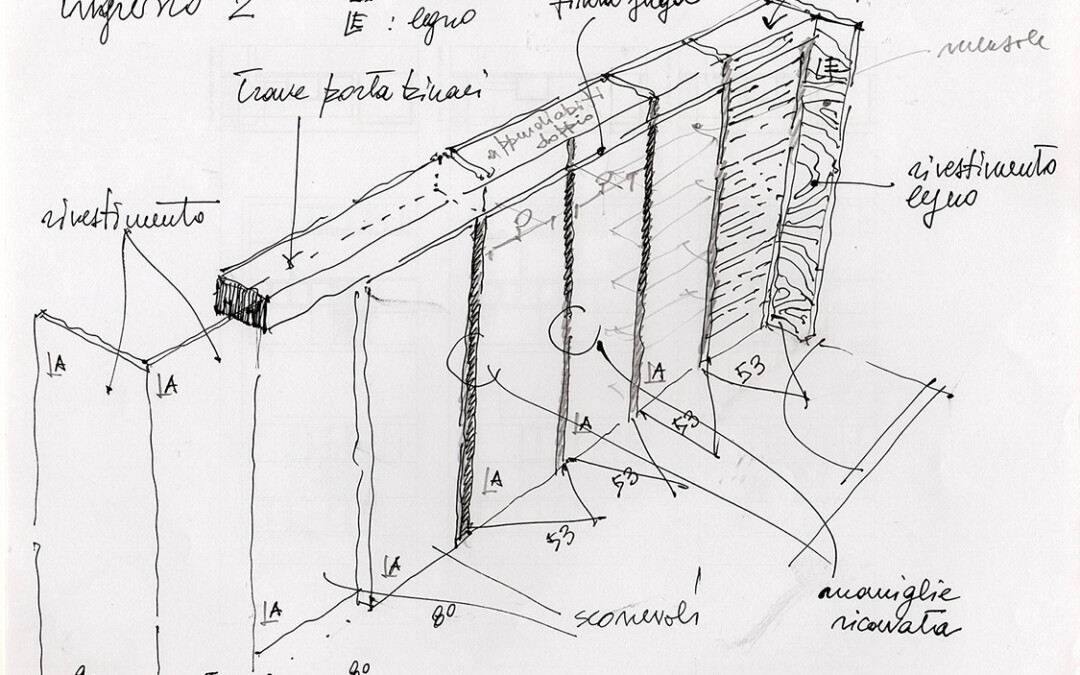 Ingresso 2
LE : legno
Trave porta binari
mensole
LE
appendiabiti
doppio
rivestimento
legno
rivestimento
LA
LA
53
LA
53
LA
53
LA
53
LA
LA
80
sconevoli
maniglie
ricavata
80